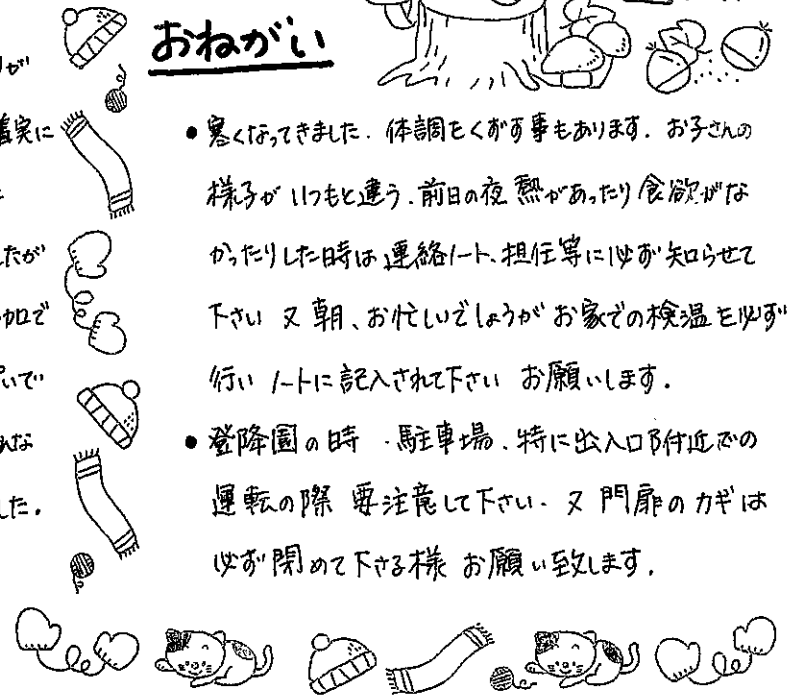 おねがい
•寒くなってきました．体調をくずす事もあります．お子さんの
様子がいつもと違う．前日の夜 熱があったり食欲がな
かったりした時は連絡ノート、担任等に必ず知らせて
下さい 又 朝、お忙しいでしょうが お家での検温を必ず
行い ノートに記入されて下さい お願いします．
•登降園の時 ・駐車場、特に出入口附近での
運転の際 要注意して下さい．又 門扉のカギは
必ず閉めて下さる様 お願い致します．
が
着実に
たが
加で
いで
した．